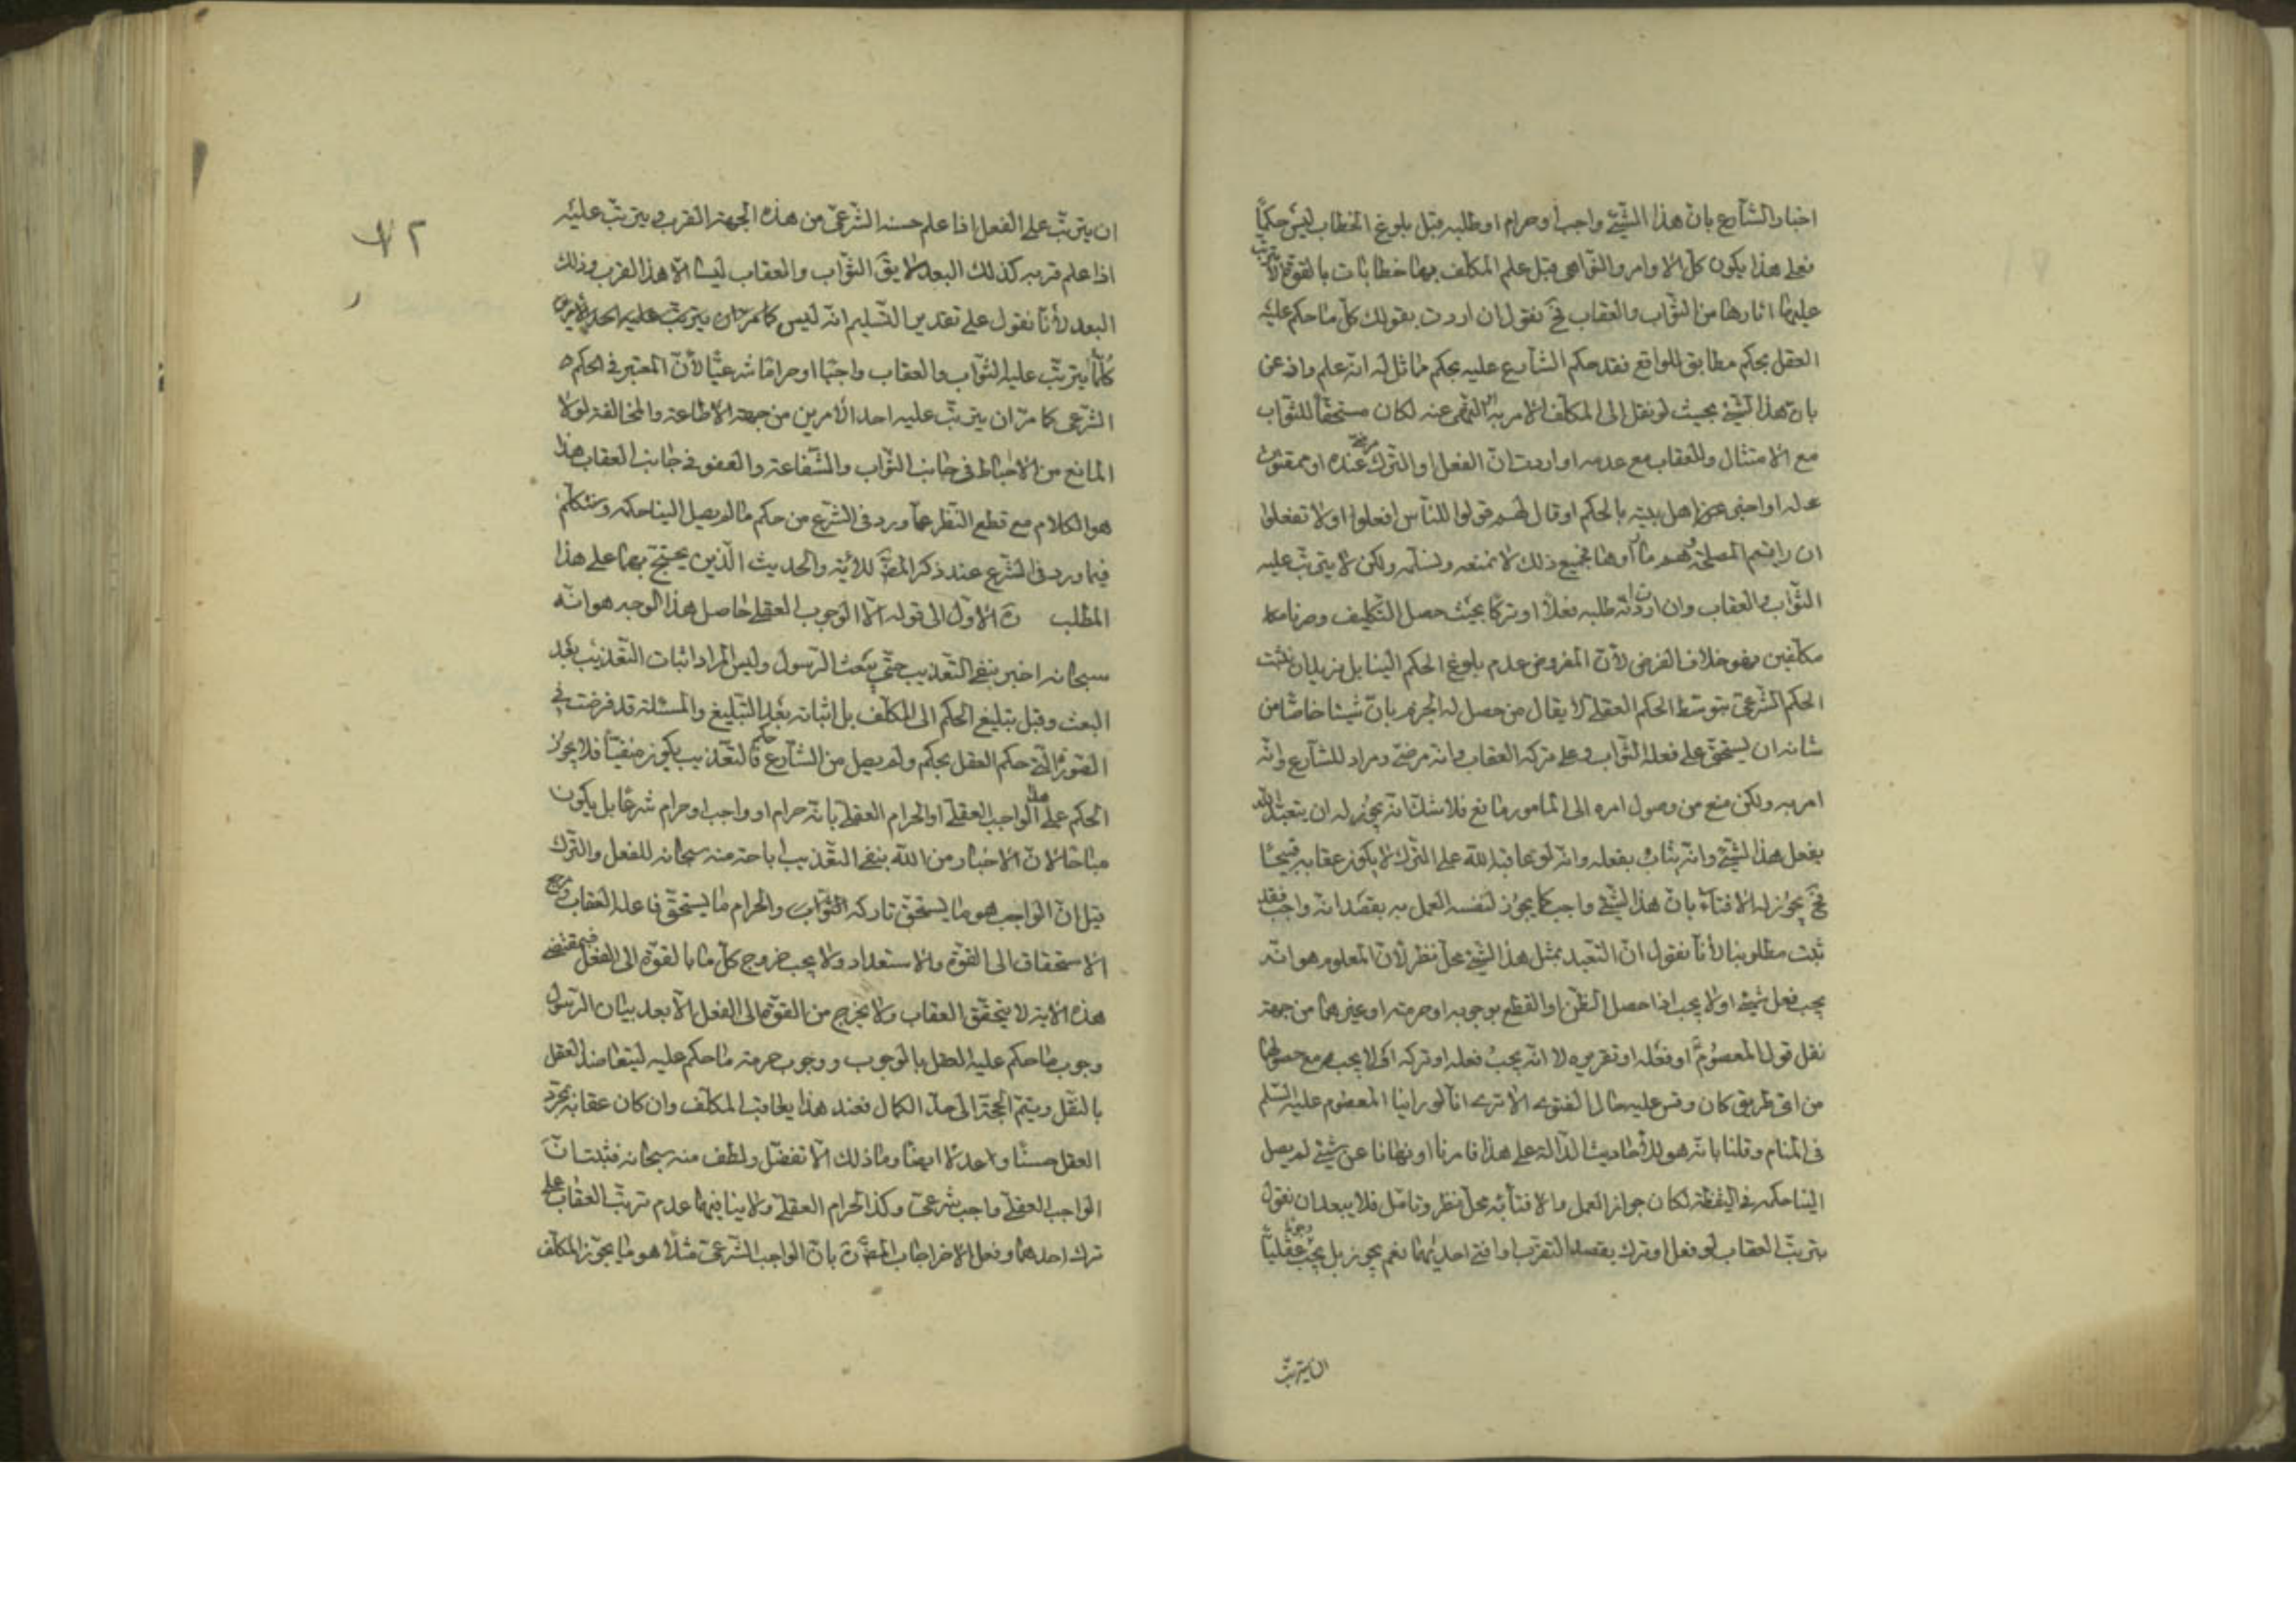 اخبار الشارع بان هذا الشیء واجب او حرام او طلبه قبل بلوغ الخطاب لیس حکمًا
فعلی هذا یکون کل الاوامر والنواهی قبل علم المکلف بها خطابات بالقوة لا یترتب
علیها اثارها من الثواب والعقاب فح نقول ان اردت بقولک کل ما حکم علیه
العقل بحکم مطابق للواقع فقد حکم الشارع علیه بحکم مماثل له انه علم واذعن
بان هذا الشیء بحیث لو نقل الی المکلف الامر به او النهی عنه لکان مستحقا للثواب
مع الامتثال والعقاب مع عدمه او اردت ان الفعل او الترک مرضی عنده او ممقوت
عنه او اخبر عن اهل بیته بالحکم او قال لهم قولوا للناس افعلوا او لا تفعلوا
ان رایتم المصلحة فجمیع ذلک لا نمنعه ونسلمه ولکن لا یترتب علیه
الثواب والعقاب وان اردت انه طلبه فعلا او ترکا بحیث حصل التکلیف وصرنا
مکلفین فهو خلاف الفرض لان المفروض عدم بلوغ الحکم الینا بل نرید ان نثبت
الحکم الشرعی بتوسط الحکم العقلی لا یقال من حصل له الجزم بان شیئا خاصا من
شانه ان یستحق علی فعله الثواب وعلی ترکه العقاب وانه مرضی ومراد للشارع وانه
امر به ولکن منع من وصول امره الی المامور مانع فلا شک انه یجوز له ان یتعبد الله
بفعل هذا الشیء وانه یثاب بفعله وانه لو عاقبه الله علی الترک لا یکون عقابه قبیحا
فح یجوز له الافتاء بان هذا الشیء واجب کما یجوز لنفسه العمل به بقصد انه واجب فقد
ثبت مطلوبنا لانا نقول ان التعبد بمثل هذا الشیء محل نظر لان المعلوم هو انه
یجب فعل شیء او لا یجب اذا حصل الظن او القطع بوجوبه او حرمته او غیرهما من جهة
نقل قول المعصوم او فعله او تقریره لا انه یجب فعله او ترکه او لا یجب مع حصولهما
من ای طریق کان وقس علیه حال الفتوی الا تری انا لو راینا المعصوم علیه السلم
فی المنام وقلنا بانه هو للاحادیث الدالة علی هذا فامرنا او نهانا عن شیء لم یصل
الینا حکمه فی الیقظة لکان جواز العمل والافتاء به محل نظر وتامل فلا یبعد ان نقول
یترتب العقاب لو فعل او ترک بقصد التقرب او افتی احد بهما نعم یجوز بل یجب وجوبا عقلیا
ان یترتب
ان یترتب علی الفعل اذا علم حسنه الشرعی من هذه الجهة القرب ویترتب علیه
اذا علم قربه کذلک البعد لا یق الثواب والعقاب لیسا الا هذا القرب وذلک
البعد لانا نقول علی تقدیر التسلیم انه لیس کل امر جاز یترتب علیه احد الامرین
کلما یترتب علیه الثواب والعقاب واجبا او حراما شرعیا لان المعتبر فی الحکم
الشرعی کما مر ان یترتب علیه احد الامرین من جهة الاطاعة والمخالفة لولا
المانع من الاحباط فی جانب الثواب والشفاعة والعفو فی جانب العقاب هذا
هو الکلام مع قطع النظر عما ورد فی الشرع من حکم ما لم یصل الینا حکمه وسنتکلم
فیما ورد فی الشرع عند ذکر المض للایة والحدیث الذین یحتج بهما علی هذا
المطلب الاول الی قوله اما الوجوب العقلی حاصل هذا الوجه هو انه
سبحانه اخبر بنفی التعذیب حتی یبعث الرسول ولیس المراد اثبات التعذیب بعد
البعث وقبل تبلیغ الحکم الی المکلف بل اثباته بعد التبلیغ والمسئلة قد فرضت فی
الصورة التی حکم العقل بحکم ولم یصل من الشارع حکم فالتعذیب یکون منفیا فلا یجوز
الحکم علی الواجب العقلی او الحرام العقلی بانه حرام او واجب او حرام شرعا بل یکون
مباحا لان الاخبار من الله بنفی التعذیب اباحة منه سبحانه للفعل والترک
قیل ان الواجب هو ما یستحق تارکه الثواب والحرام ما یستحق فاعله العقاب
الاستحقاق الی القوة والاستعداد ولا یجب خروج کل ما بالقوة الی الفعل فبمقتضی
هذه الایة لا یتحقق العقاب ولا یخرج من القوة الی الفعل الا بعد بیان الرسول
وجوب ما حکم علیه العقل بالوجوب ووجوب حرمة ما حکم علیه لیتعاضد العقل
بالنقل ویتم الحجة الی حد الکمال فعند هذا یعاقب المکلف وان کان عقابه بمجرد
العقل حسنا وعدلا ایضا وما ذلک الا تفضل ولطف منه سبحانه فثبت ان
الواجب العقلی واجب شرعی وکذا الحرام العقلی ولا ینافیهما عدم ترتب العقاب علی
ترک احدهما وفعل الاخر اجاب المض بان الواجب الشرعی مثلا هو ما یجوز المکلف